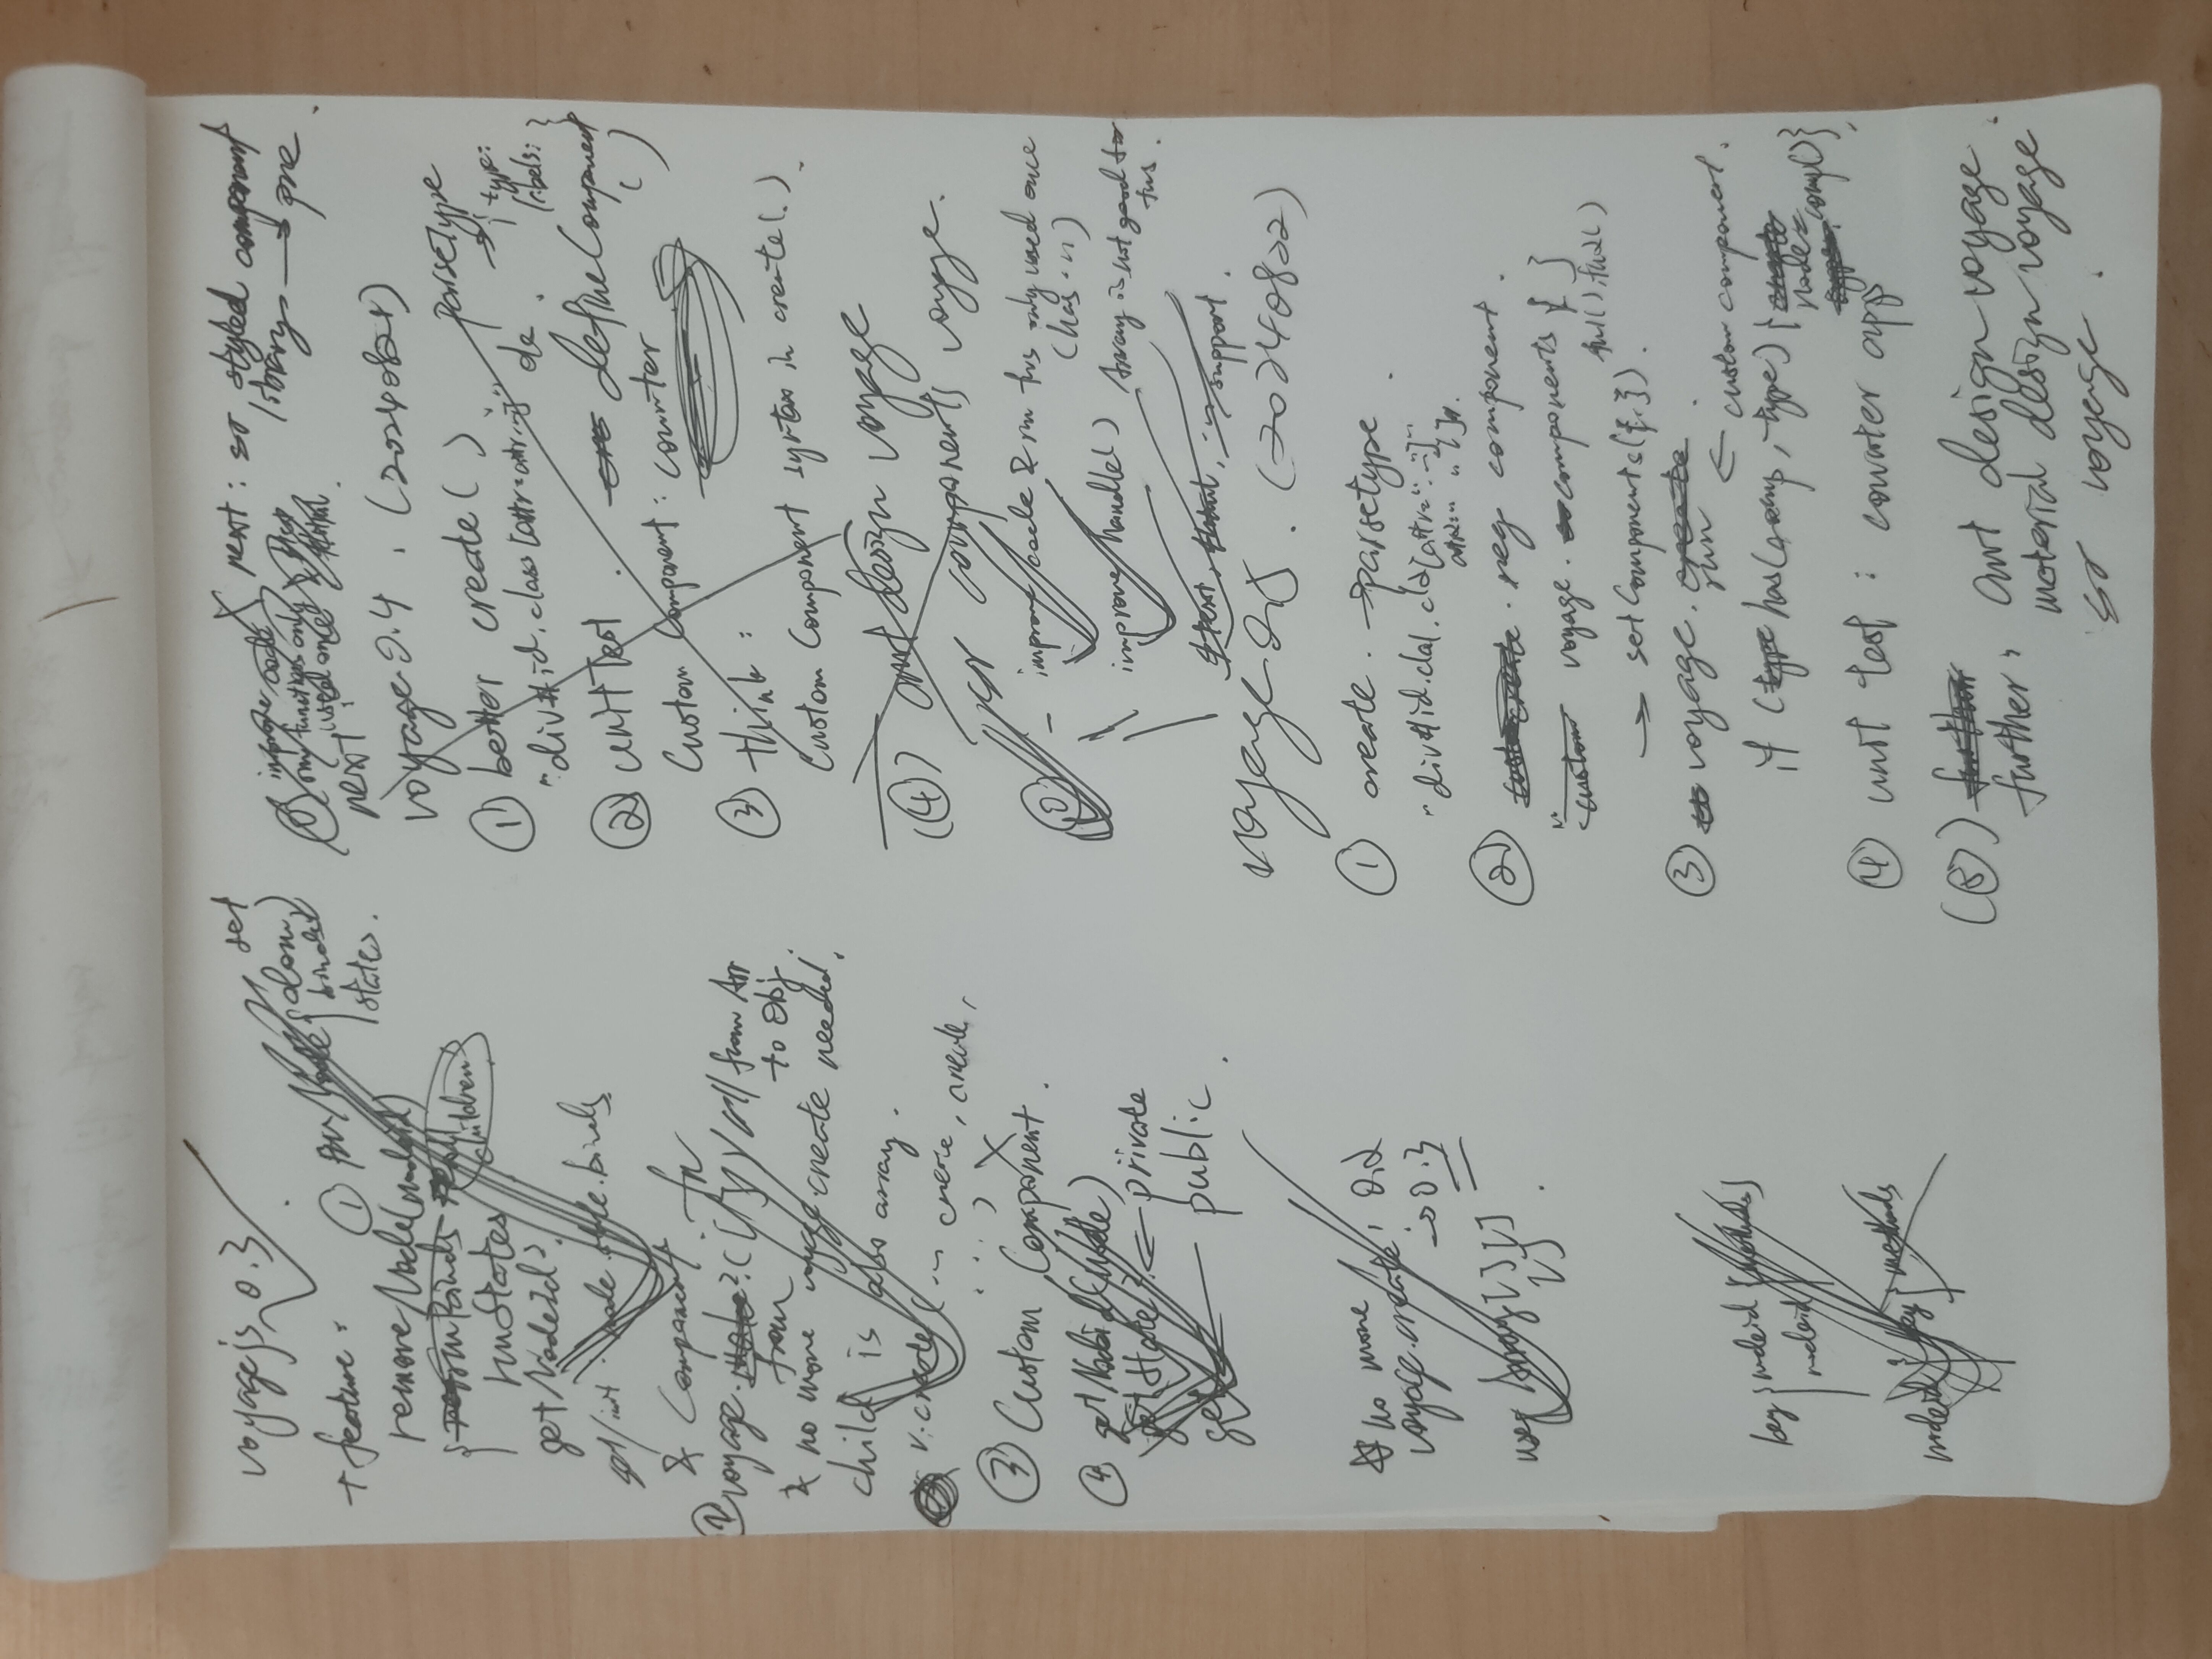 voyagejs 0.3
+ feature :
① Node { dom,
set
binds
states.
removeNode(nodeid)
rmStates
children
getNodeId?
set/init node.style.binds
& Component
② voyage. from ?([ ]) // from Arr
fn
to Obj.
& no more voyage.create needed.
child is also array.
v.create(... create, create,
...)
③ Custom Component.
④ getNodeid(Node)
getState? ← private
get ← public
no more
voyage.create! 0.2
→ 0.3
use Array[][]
[]
key { nodeid { methods }
nodeid
nodeid { key { methods
X next : sr styled component
library → pre
improve code
only used once
next :
voyage 0.4 . (20240821)
① better create( )
parseType
→ { type:
labels: }
"div#id.class[attr=attr...]" de .
② unit Test . defineComponent
( )
Custom Component : counter
③ think :
Custom Component syntax in create(.)
(④) ant design voyage
sr components voyage.
⓪ - improve code & rm fns only used once
(has...)
improve handle() Array is not good for
fns.
$text, $html, ... support.
voyage 0.5 . (20240822)
① create. → parsetype
"div#id.cla1.cla2[attr=".."]"
attr2=" "[]".
② reg component.
custom voyage. components { }
fn1(), fn2()
→ setComponents({.}).
③ voyage. create
run
← custom component.
if (type has(comp, type) { create
node=
comp()}
④ unit test : counter app
(5) further
further, ant design voyage.
material design voyage
sr voyage.